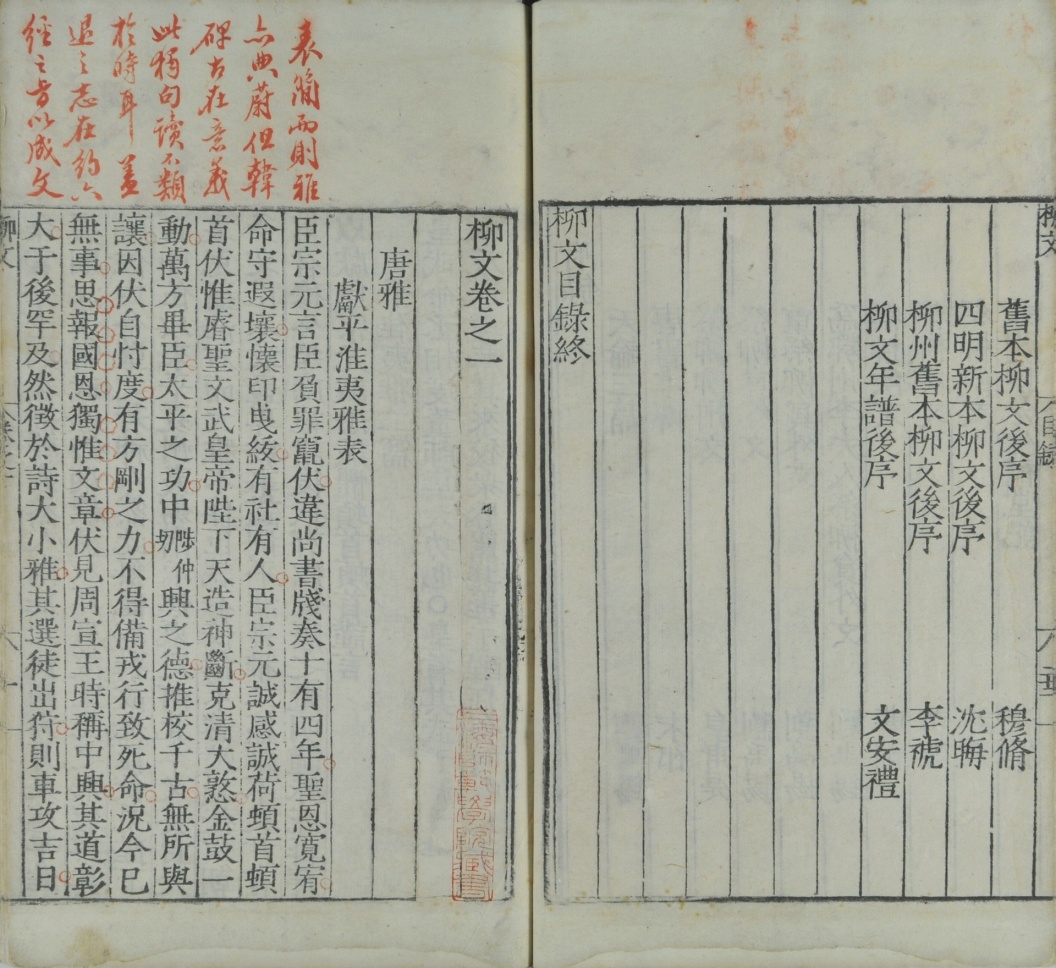 舊本柳文後序 穆脩
四明新本柳文後序 沈晦
柳州舊本柳文後序 李禠
柳文年譜後序 文安禮
柳文目錄終
柳文卷之一
唐雅
獻平淮夷雅表
臣宗元言臣負罪竄伏違尚書牋奏十有四年聖恩寬宥
命守遐壤懷印曳紱有社有人臣宗元誠感誠荷頓首頓
首伏惟睿聖文武皇帝陛下天造神斷克清大憝金鼓一
動萬方畢臣太平之功中興之德推校千古無所與
讓因伏自忖度有方剛之力不得備戎行致死命況今已
無事思報國恩獨惟文章伏見周宣王時稱中興其道彰
大于後罕及然徵於詩大小雅其選徒出狩則車攻吉日
表簡而則雅
亦典蔚但韓
碑古在意義
此猶句讀不類
於時耳蓋
退之志在約六
經之旨以成文
柳文